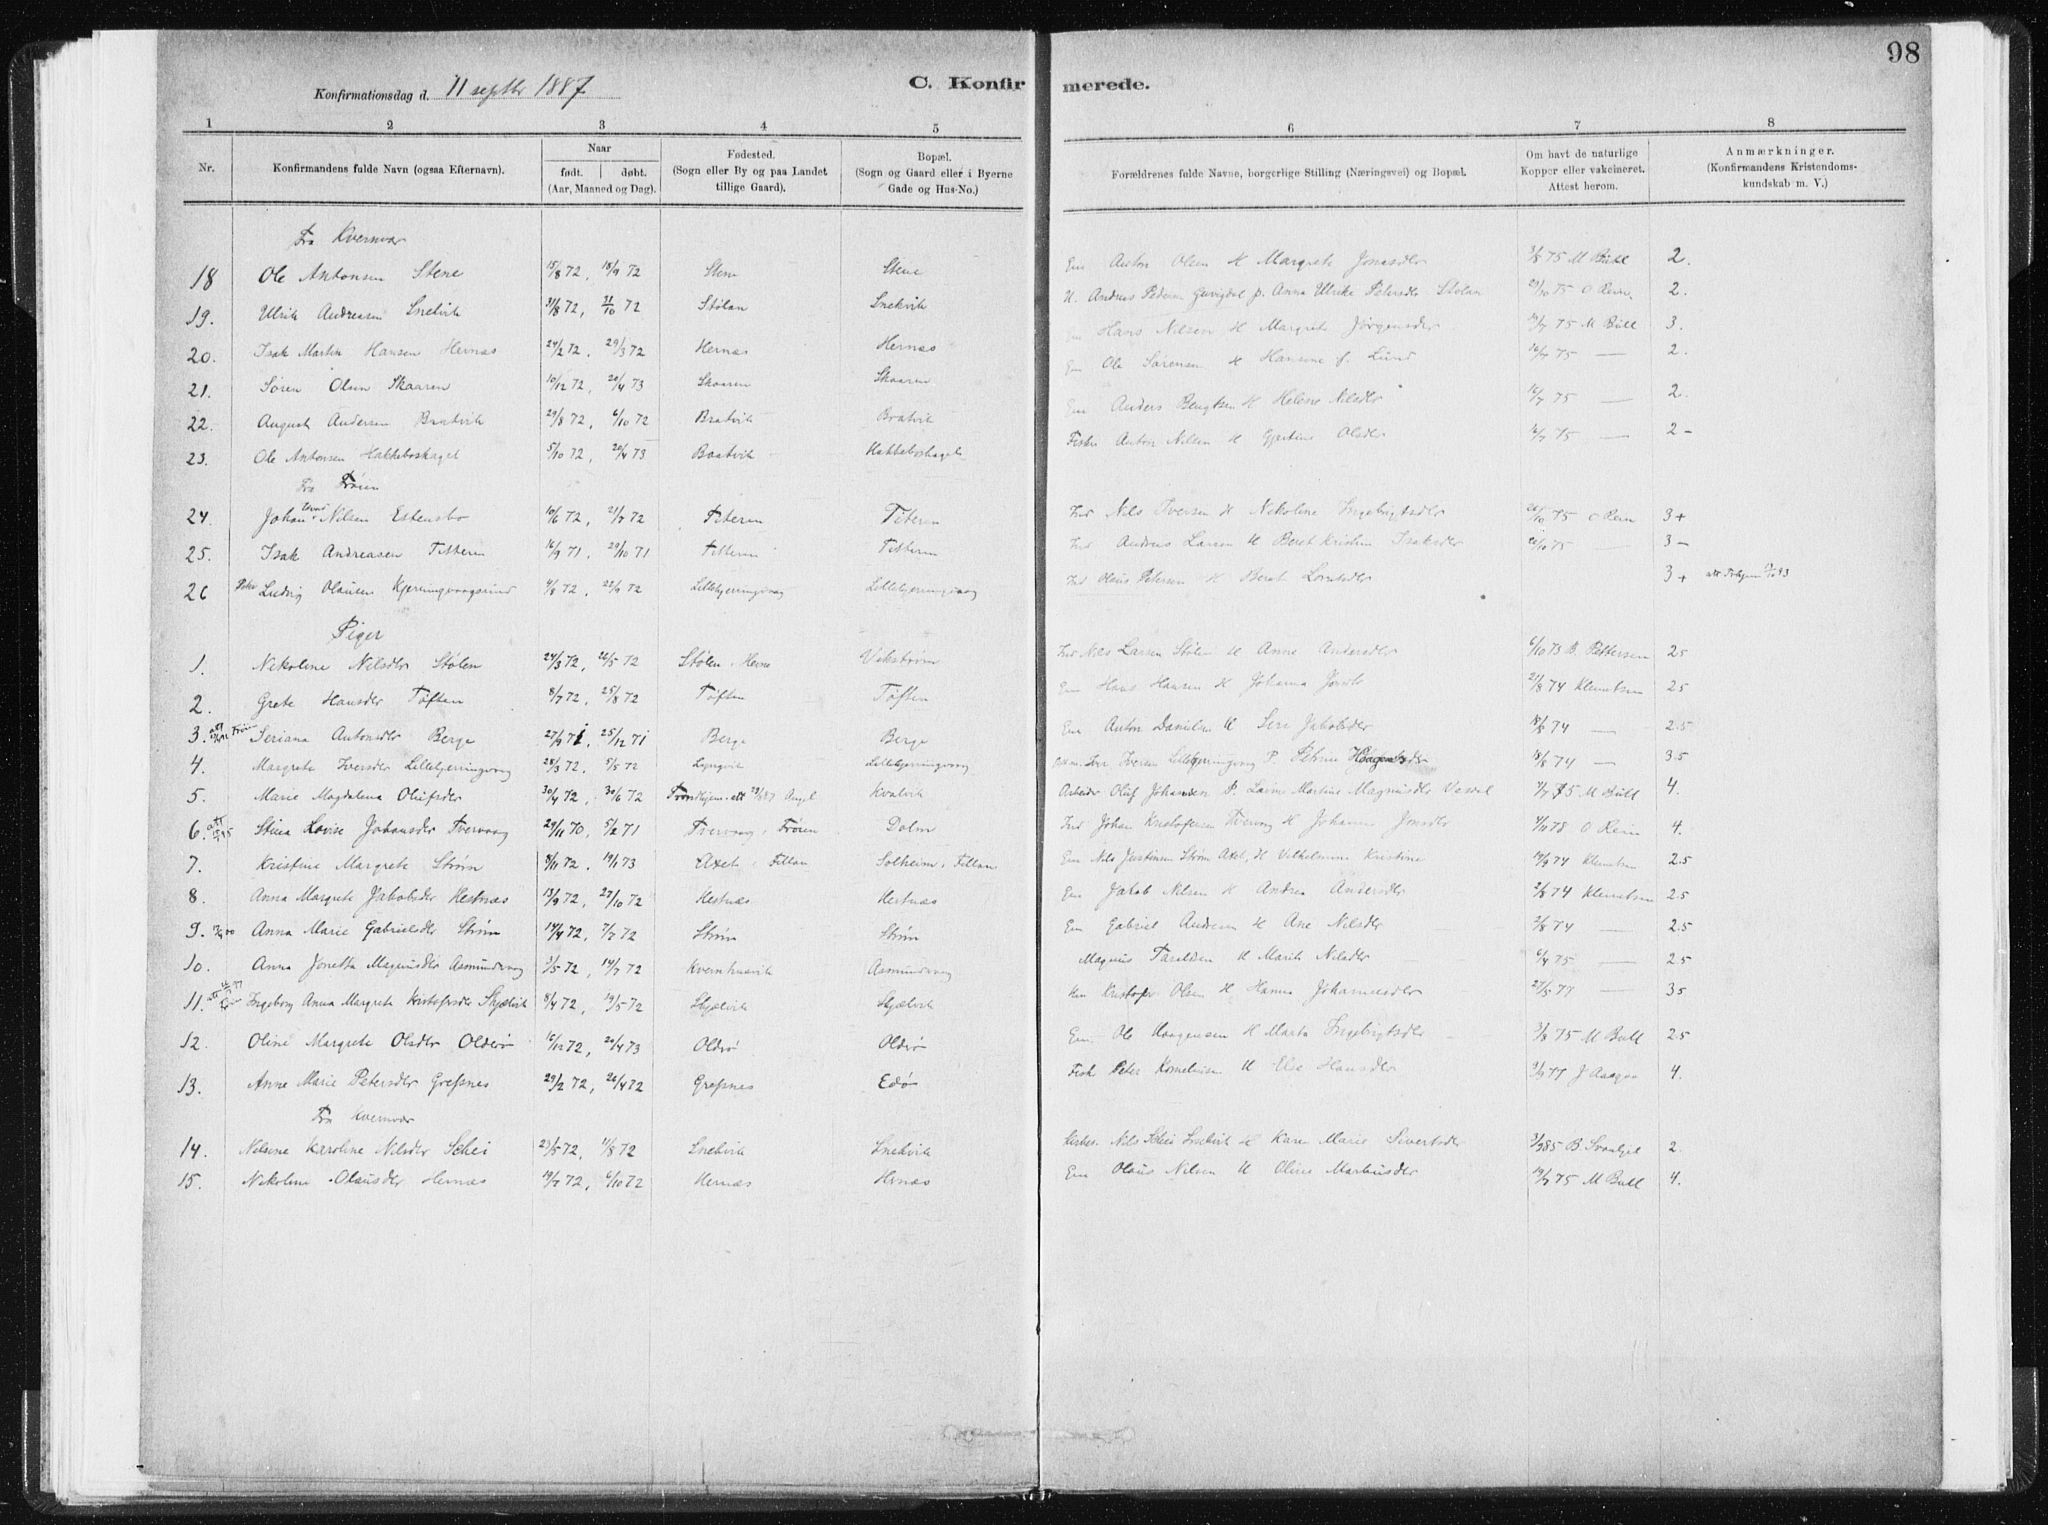 98
Konfirmationsdag d. 11 septbr 1887
C. Konfirmerede.
1 2 3 4 5 6 7 8
Nr. Konfirmandens fulde Navn (ogsaa Efternavn). Naar født. døbt. (Aar, Maaned og Dag). Fødested. (Sogn eller By og paa Landet tillige Gaard). Bopæl. (Sogn og Gaard eller i Byerne Gade og Hus-No.) Forældrenes fulde Navne, borgerlige Stilling (Næringsvei) og Bopæl. Om havt de naturlige Kopper eller vakcineret. Attest herom. Anmærkninger. (Konfirmandens Kristendomskundskab m. V.)
Fra Kvernvær
18 Ole Antonsen Stene 15/8 72, 18/9 72 Stene Stene Em Anton Olsen H Margrete Jonasdtr 3/8 75 M Bull 2.
19. Ulrik Andreasen Snekvik 31/8 72, 31/10 72 Stølan Snekvik U. Andreas Pedersen p. Anna Ulrika Petersdtr Stølan 29/10 75 O Rein 2.
20. Isak Martin Hansen Hernæs 24/2 72, 29/3 72 Hernæs Hernæs Em Hans Nilsen H Margrete Jørgensdtr 19/7 75 M Bull 3.
21. Søren Olsen Skaaren 10/12 72, 20/4 73 Skaaren Skaaren Em Ole Sørensen H Hansine f. Lund 16/7 75 — 2.
22. August Andersen Bratvik 29/8 72, 6/10 72 Bratvik Bratvik Em Anders Bengtsen H Helene Nilsdtr 16/7 75 — 2.
23. Ole Antonsen Hakkeboskaget 5/10 72, 20/4 73 Bratvik Hakkeboskaget Fisker Anton Nilsen H Gjertine Olsdtr 16/7 75 — 2-
Fra Frøien
24. Johan Nilsen Estensbo 10/6 72, 21/7 72 Titeren Titeren Ind Nils Iversen H Nikoline Ingebrigtsdtr 20/10 75 O Rein 3+
25. Isak Andreasen Titteren 16/9 71, 29/10 71 Titteren Titteren Ind Andreas Larsen H Beret Kristine Isaksdtr 20/10 75 — 3-
26 Peter Ludvig Olausen Kjerringvaagsund 4/8 72, 22/9 72 Lillekjerringvaag Lillekjerringvaag Ind Olaus Petersen H Berat Lorntsdtr 3+
Piger
1. Nikoline Nilsdtr Stølen 24/3 72, 26/5 72 Stølen, Hevne Vikstrøm Ind Nils Larsen Stølen H Anne Andersdtr 6/10 73 B. Pettersen 25
2. Grete Hansdtr Tøften 8/7 72, 25/8 72 Tøften Tøften Em Hans Hansen H Johanna 21/8 74 Klemetsen 25
3. Seriana Antonsdtr Berge 27/9 71, 25/12 71 Berge Berge Em Anton Danielsen H Seri Jakobsdtr 18/6 74 — 2.5
4. Margrete Iversdtr Lillekjerringvaag 28/3 72, 5/5 72 Lyngvik Lillekjerringvaag Iver Iversen Lillekjerringvaag P. Petrine 18/6 74 — 35
5. Marie Magdalena Olufsdtr 30/4 72, 30/6 72 Trondhjem Kvalvik Arbeider Oluf Johansen P. Martine Magnusdtr 7/7 75 M Bull 4.
6. Stina Lovise Johansdtr Tvervaag 29/11 70, 5/2 71 Tvervaag, Frøien Dolm Ind Johan Kristofersen Tvervaag H Johanna 4/11 78 O Rein 4.
7. Kristine Margrete Strøm 8/11 72, 19/1 73 Axet, Fillan Solheim, Fillan Em Nils Justinsen Strøm Axet, H Vilhelmine Kristine 19/9 74 Klemetsen 2.5
8. Anna Margrete Jakobsdtr Hestnæs 13/9 72, 27/10 72 Hestnæs Hestnæs Em Jakob Nilsen H Andrea Andersdtr 2/8 74 Klemetsen 25
9. Anna Marie Gabrielsdtr Strøm 14/4 72, 7/7 72 Strøm Strøm Em Gabriel Andersen H Ane Nilsdtr 2/8 74 — 2.5
10. Anna Jonetta Magnusdtr Asmundvaag 3/5 72, 14/7 72 Kvernhusvik Asmundvaag Magnus Taraldsen H Marit Nilsdtr 6/4 75 — 25
11. Ingeborg Anna Margrete Kristofersdtr Skjælvik 8/4 72, 19/5 72 Skjælvik Skjælvik Em Kristofer Olsen H Hanna Johannesdtr 27/5 77 — 35
12. Oline Margrete Olsdtr Olderø 16/12 72, 20/4 73 Olderø Olderø Em. Ole Haagensen H Marta Ingebrigtsdtr 3/8 75 M Bull 25
13. Anne Marie Petersdtr Grefsnes 29/2 72, 26/4 72 Grefsnes Edø Fisk Peter Korneliusen H Else Hansdtr 9/9 77 J Aasgaa 4.
Fra Kvernvær
14. Nilsine Karoline Nilsdtr Schei 23/5 72, 11/8 72 Snekvik Snekvik Nils Schei Snekvik H Karen Marie Sivertsdtr 3/9 85 B. Svanhjel 2.
15. Nikoline Olausdtr Hernæs 19/7 72, 6/10 72 Hernæs Hernæs Em Olaus Nilsen H Oline Markusdtr 19/7 75 M Bull 4.